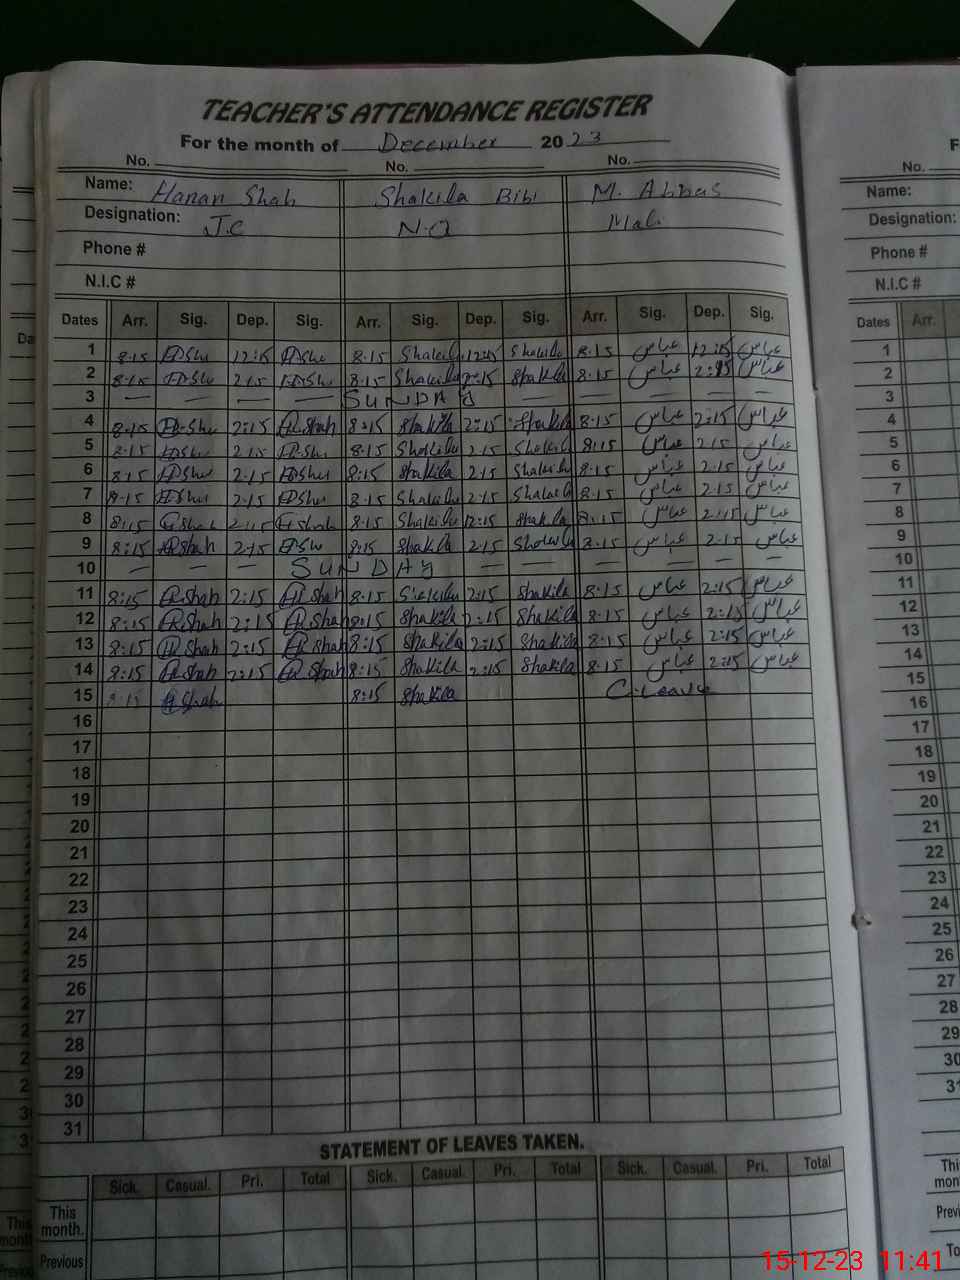 TEACHER'S ATTENDANCE REGISTER
For the month of December 2023
No. No. No.
Name: Hanan Shah Shakila Bibi M. Abbas
Designation: J.C N.Q Mali
Phone #
N.I.C #
Dates Arr. Sig. Dep. Sig. Arr. Sig. Dep. Sig. Arr. Sig. Dep. Sig.
1 8.15 12:15 8.15 Shakila 12:15 Shakila 8.15 عباس 12:15 عباس
2 8.15 2.15 8.15 Shakila 2:15 Shakila 8.15 عباس 2:15 عباس
3 — — — — SUNDAY — — — — — —
4 8.15 2:15 Shah 8:15 Shakila 2:15 Shakila 8.15 عباس 2:15 عباس
5 8.15 2.15 8.15 Shakila 2.15 Shakila 8:15 عباس 2.15 عباس
6 8.15 2.15 8:15 Shakila 2.15 Shakila 8.15 عباس 2.15 عباس
7 8.15 2.15 8.15 Shakila 2.15 Shakila 8.15 عباس 2.15 عباس
8 8:15 Shah 2:15 Shah 8.15 Shakila 2:15 Shakila 8:15 عباس 2:15 عباس
9 8:15 Shah 2.15 8:15 Shakila 2.15 Shakila 8.15 عباس 2.15 عباس
10 — — — SUNDAY — — — — — —
11 8:15 Shah 2:15 Shah 8:15 Shakila 2:15 Shakila 8:15 عباس 2:15 عباس
12 8:15 Shah 2:15 Shah 8:15 Shakila 2:15 Shakila 8.15 عباس 2:15 عباس
13 8:15 Shah 2:15 Shah 8:15 Shakila 2:15 Shakila 8.15 عباس 2:15 عباس
14 8:15 Shah 2:15 Shah 8:15 Shakila 2:15 Shakila 8.15 عباس 2:15 عباس
15 8:15 Shah 8:15 Shakila C.Leave
16
17
18
19
20
21
22
23
24
25
26
27
28
29
30
31
STATEMENT OF LEAVES TAKEN.
Sick. Casual. Pri. Total Sick. Casual. Pri. Total Sick. Casual. Pri. Total
This month.
Previous
No.
Name:
Designation:
Phone #
N.I.C #
Dates Arr.
1
2
3
4
5
6
7
8
9
10
11
12
13
14
15
16
17
18
19
20
21
22
23
24
25
26
27
28
29
30
15-12-23 11:41